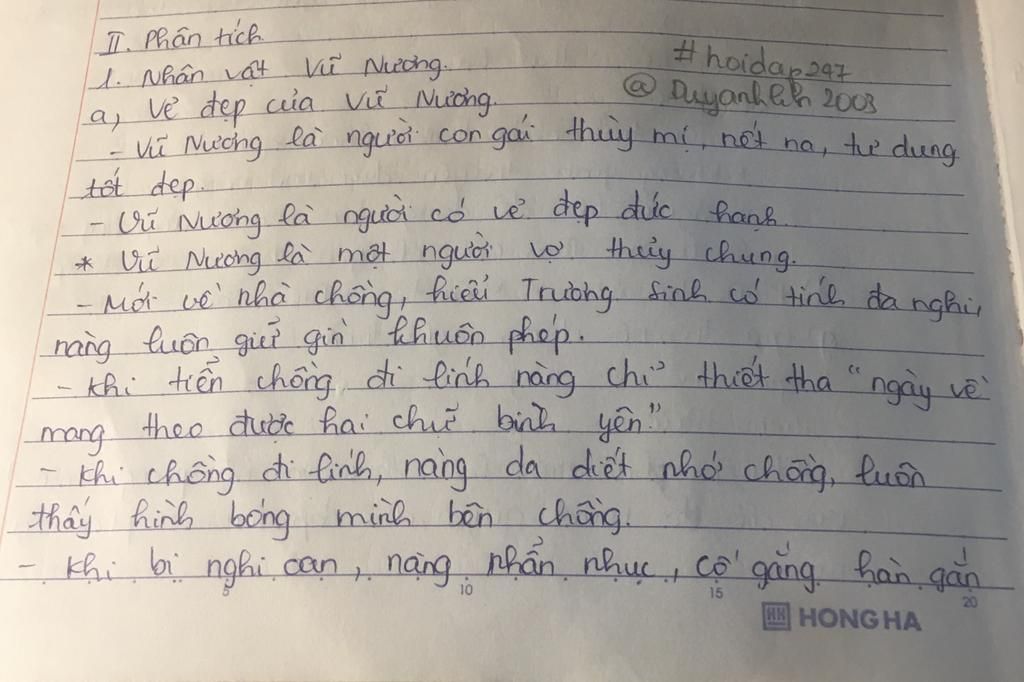 II. Phân tích
1. Nhân vật Vũ Nương.
#hoidap247
a, Vẻ đẹp của Vũ Nương.
@ Duyanhlih 2003
- Vũ Nương là người con gái thùy mị, nết na, tư dung
tốt đẹp.
- Vũ Nương là người có vẻ đẹp đức hạnh
* Vũ Nương là một người vợ thủy chung.
- Mới về nhà chồng, hiểu Trương Sinh có tính đa nghi,
nàng luôn giữ gìn khuôn phép.
- Khi tiễn chồng đi lính nàng chỉ thiết tha "ngày về
mang theo được hai chữ bình yên"
- Khi chồng đi lính, nàng da diết nhớ chồng, luôn
thấy hình bóng mình bên chồng.
- Khi bị nghi oan, nàng nhẫn nhục, cố gắng hàn gắn
5 10 15 20
HH HONG HA